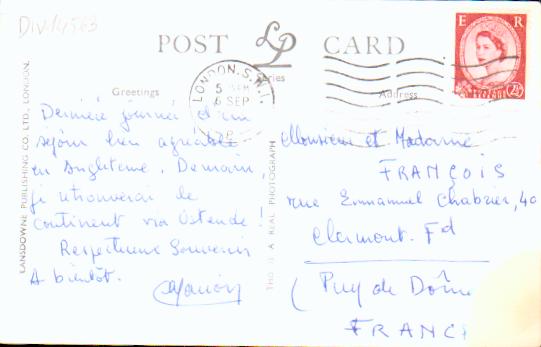 Div.14563
POST LP CARD
Series
Greetings
Address
E R
2½
LONDON.S.W.1.
5
6 SEP
Dernière journée d'un
séjour bien agréable
en Angleterre. Demain,
je retrouverai le
Continent via Ostende !
Respectueux Souvenir
A bientôt.
Monsieur et Madame
FRANÇOIS
rue Emmanuel Chabrier, 40
Clermont. Fd
( Puy de Dôme
FRANC
LANSDOWNE PUBLISHING CO. LTD., LONDON.
THIS IS A REAL PHOTOGRAPH